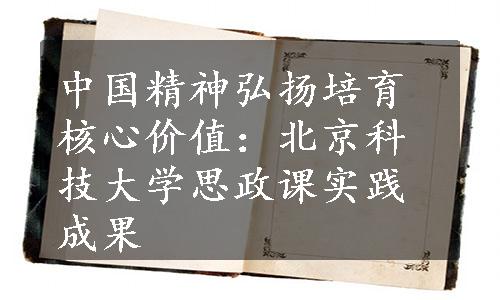 中国精神弘扬培育
核心价值：北京科
技大学思政课实践
成果